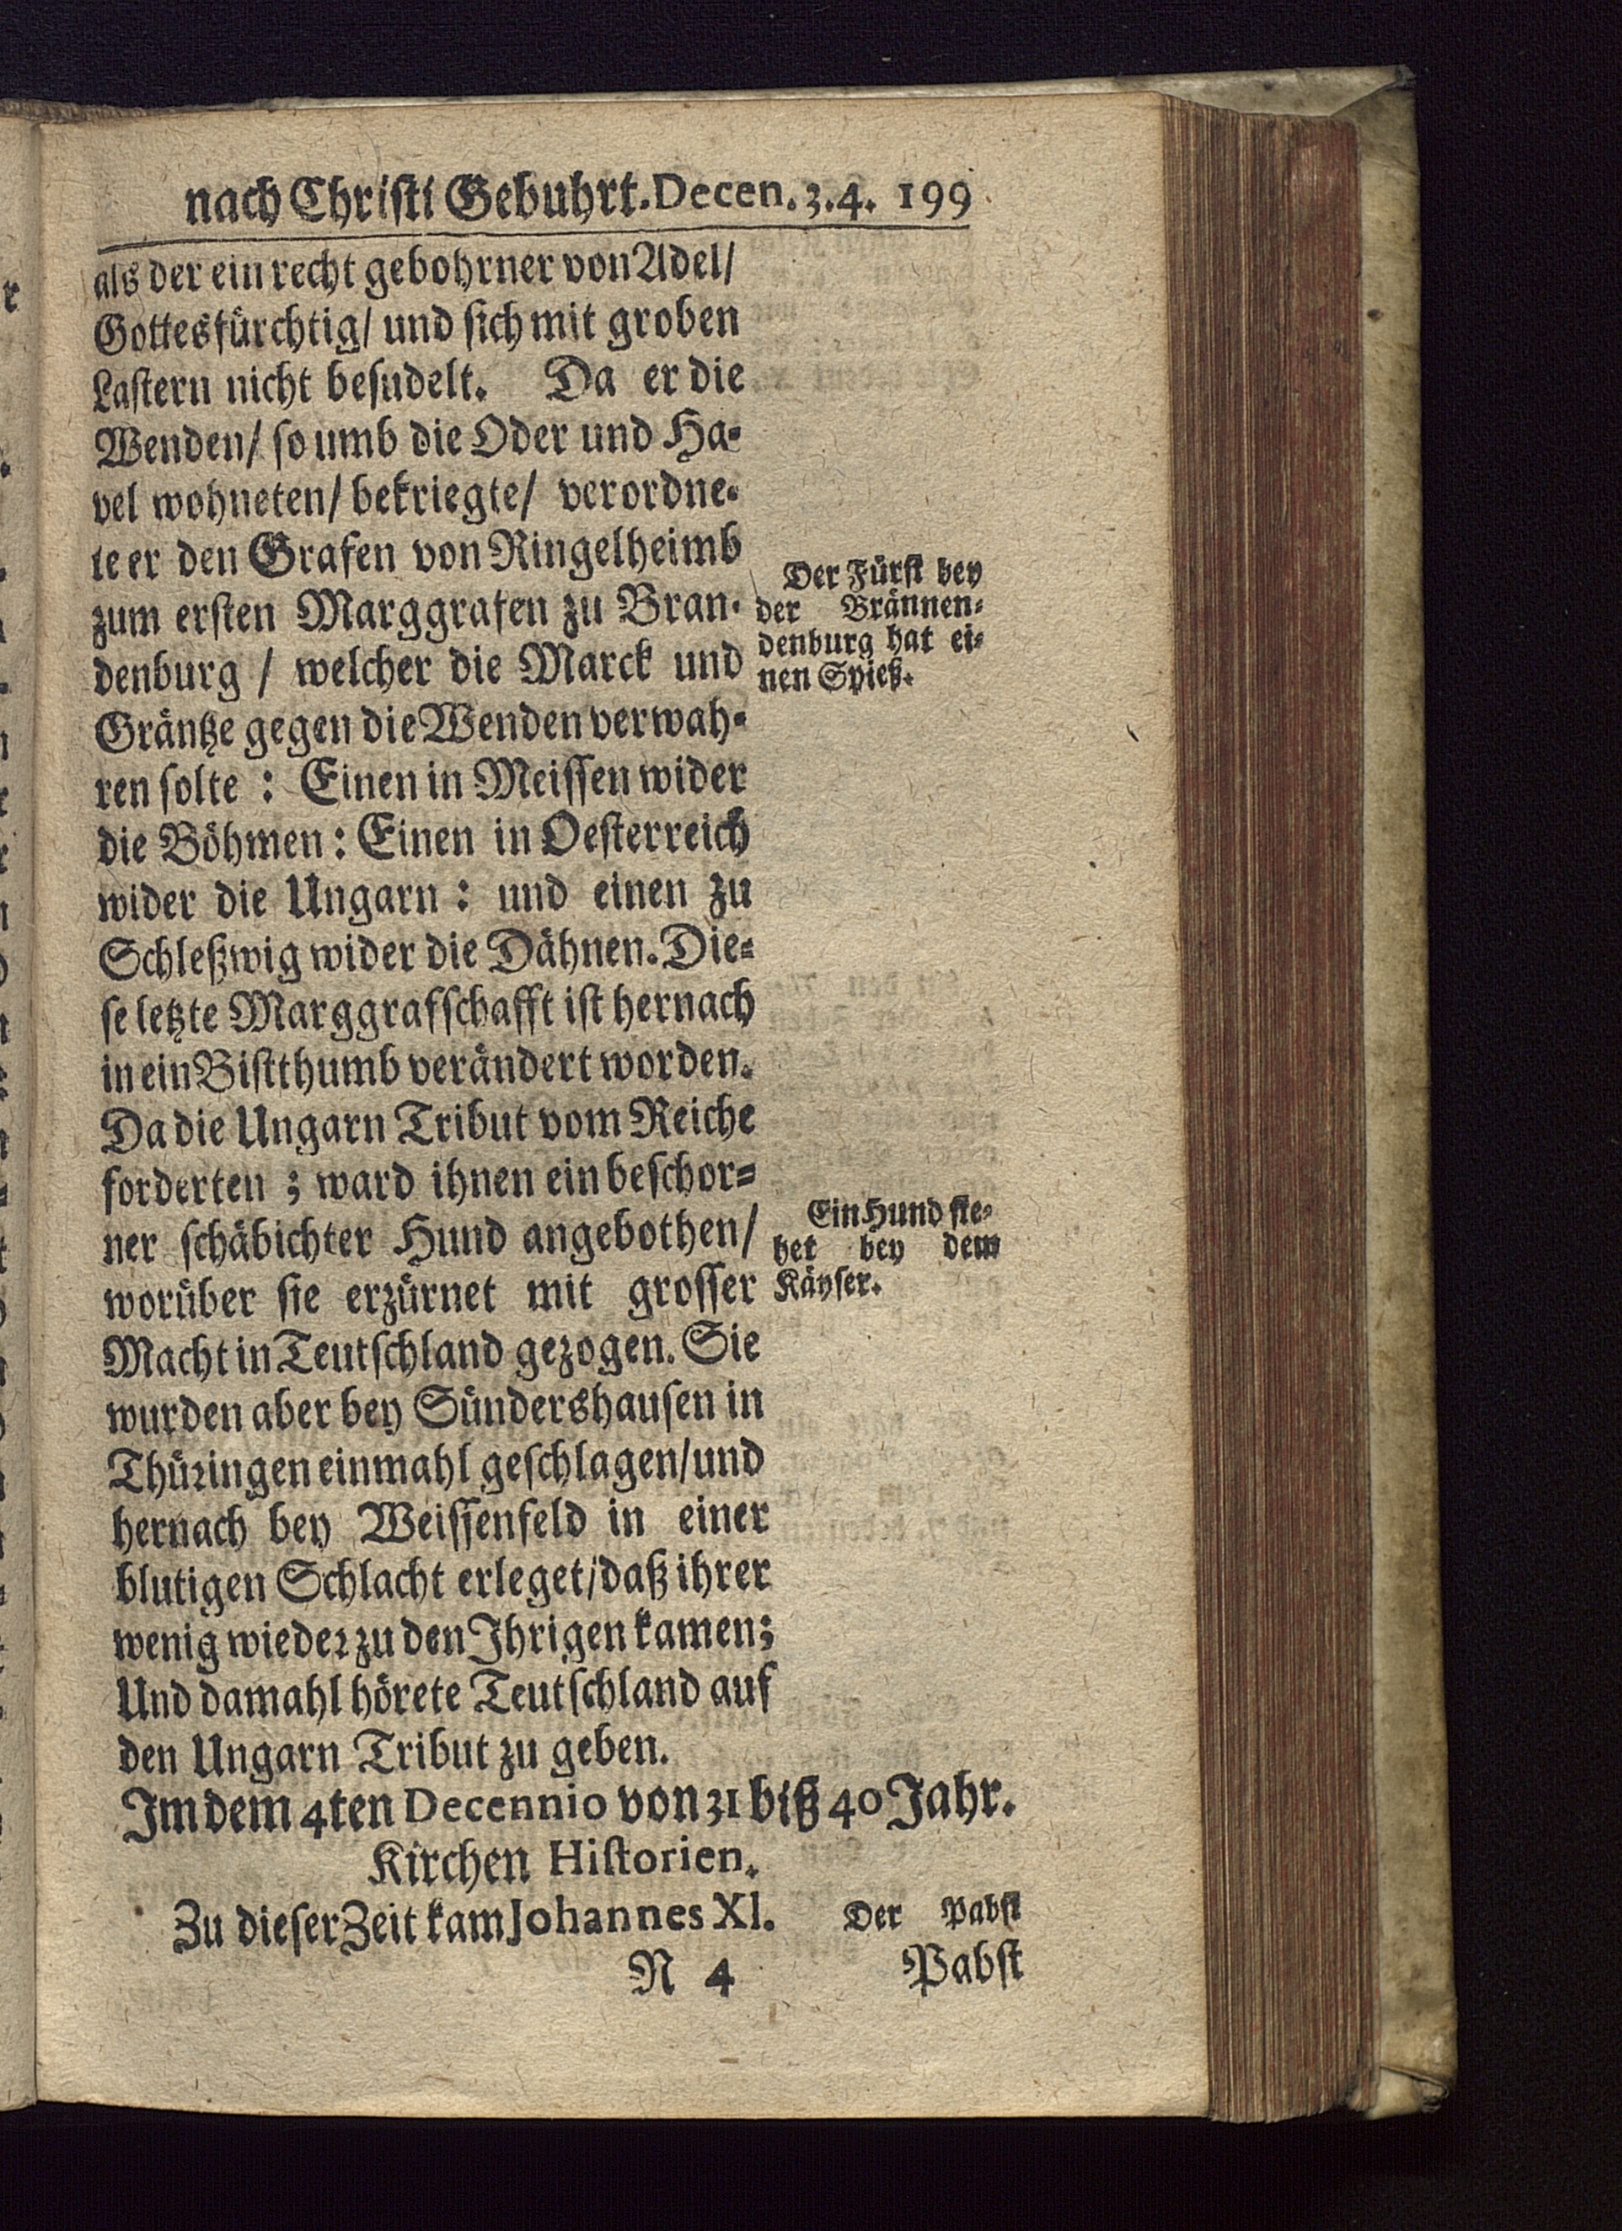 nach Christi Gebuhrt. Decen. 3. 4. 199
als der ein recht gebohrner von Adel/
Gottesfürchtig/ und sich mit groben
Lastern nicht besudelt. Da er die
Wenden/ so umb die Oder und Ha-
vel wohneten/ bekriegte/ verordne-
te er den Grafen von Ringelheimb
zum ersten Marggrafen zu Bran-
denburg / welcher die Marck und
Gräntze gegen die Wenden verwah-
ren solte : Einen in Meissen wider
die Böhmen : Einen in Oesterreich
wider die Ungarn : und einen zu
Schleßwig wider die Dähnen. Die-
se letzte Marggrafschafft ist hernach
in ein Bistthumb verändert worden.
Da die Ungarn Tribut vom Reiche
forderten ; ward ihnen ein beschor-
ner schäbichter Hund angebothen/
worüber sie erzürnet mit grosser
Macht in Teutschland gezogen. Sie
wurden aber bey Sündershausen in
Thüringen einmahl geschlagen/ und
hernach bey Weissenfeld in einer
blutigen Schlacht erleget/ daß ihrer
wenig wieder zu den Ihrigen kamen;
Und damahl hörete Teutschland auf
den Ungarn Tribut zu geben.
Der Fürst bey
der Brännen-
denburg hat ei-
nen Spieß.
Ein Hund ste-
het bey dem
Käyser.
Im dem 4ten Decennio von 31 biß 40 Jahr.
Kirchen Historien.
Zu dieser Zeit kam Johannes XI.
Der Pabst
N 4
Pabst